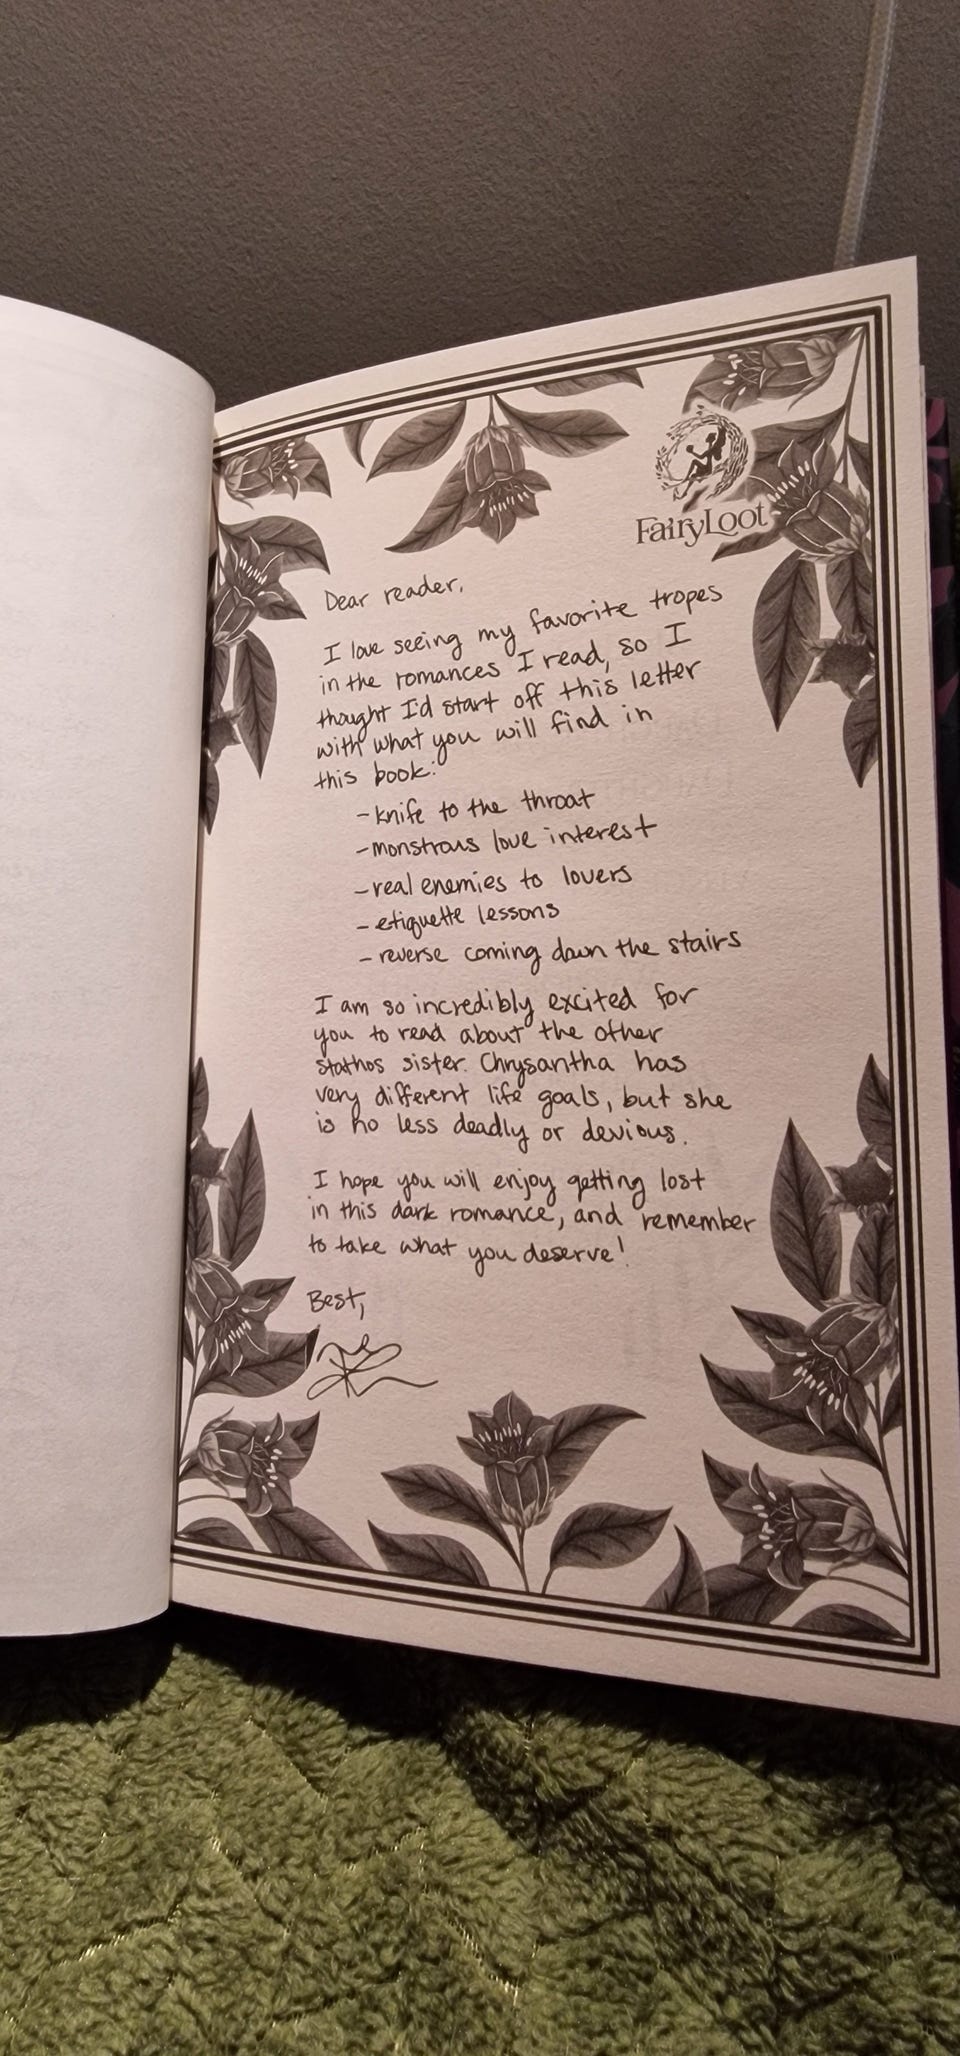 FairyLoot
Dear reader,
I love seeing my favorite tropes
in the romances I read, so I
thought I'd start off this letter
with what you will find in
this book:
-knife to the throat
-monstrous love interest
-real enemies to lovers
-etiquette lessons
-reverse coming down the stairs
I am so incredibly excited for
you to read about the other
Stathos sister. Chrysantha has
very different life goals, but she
is no less deadly or devious.
I hope you will enjoy getting lost
in this dark romance, and remember
to take what you deserve!
Best,